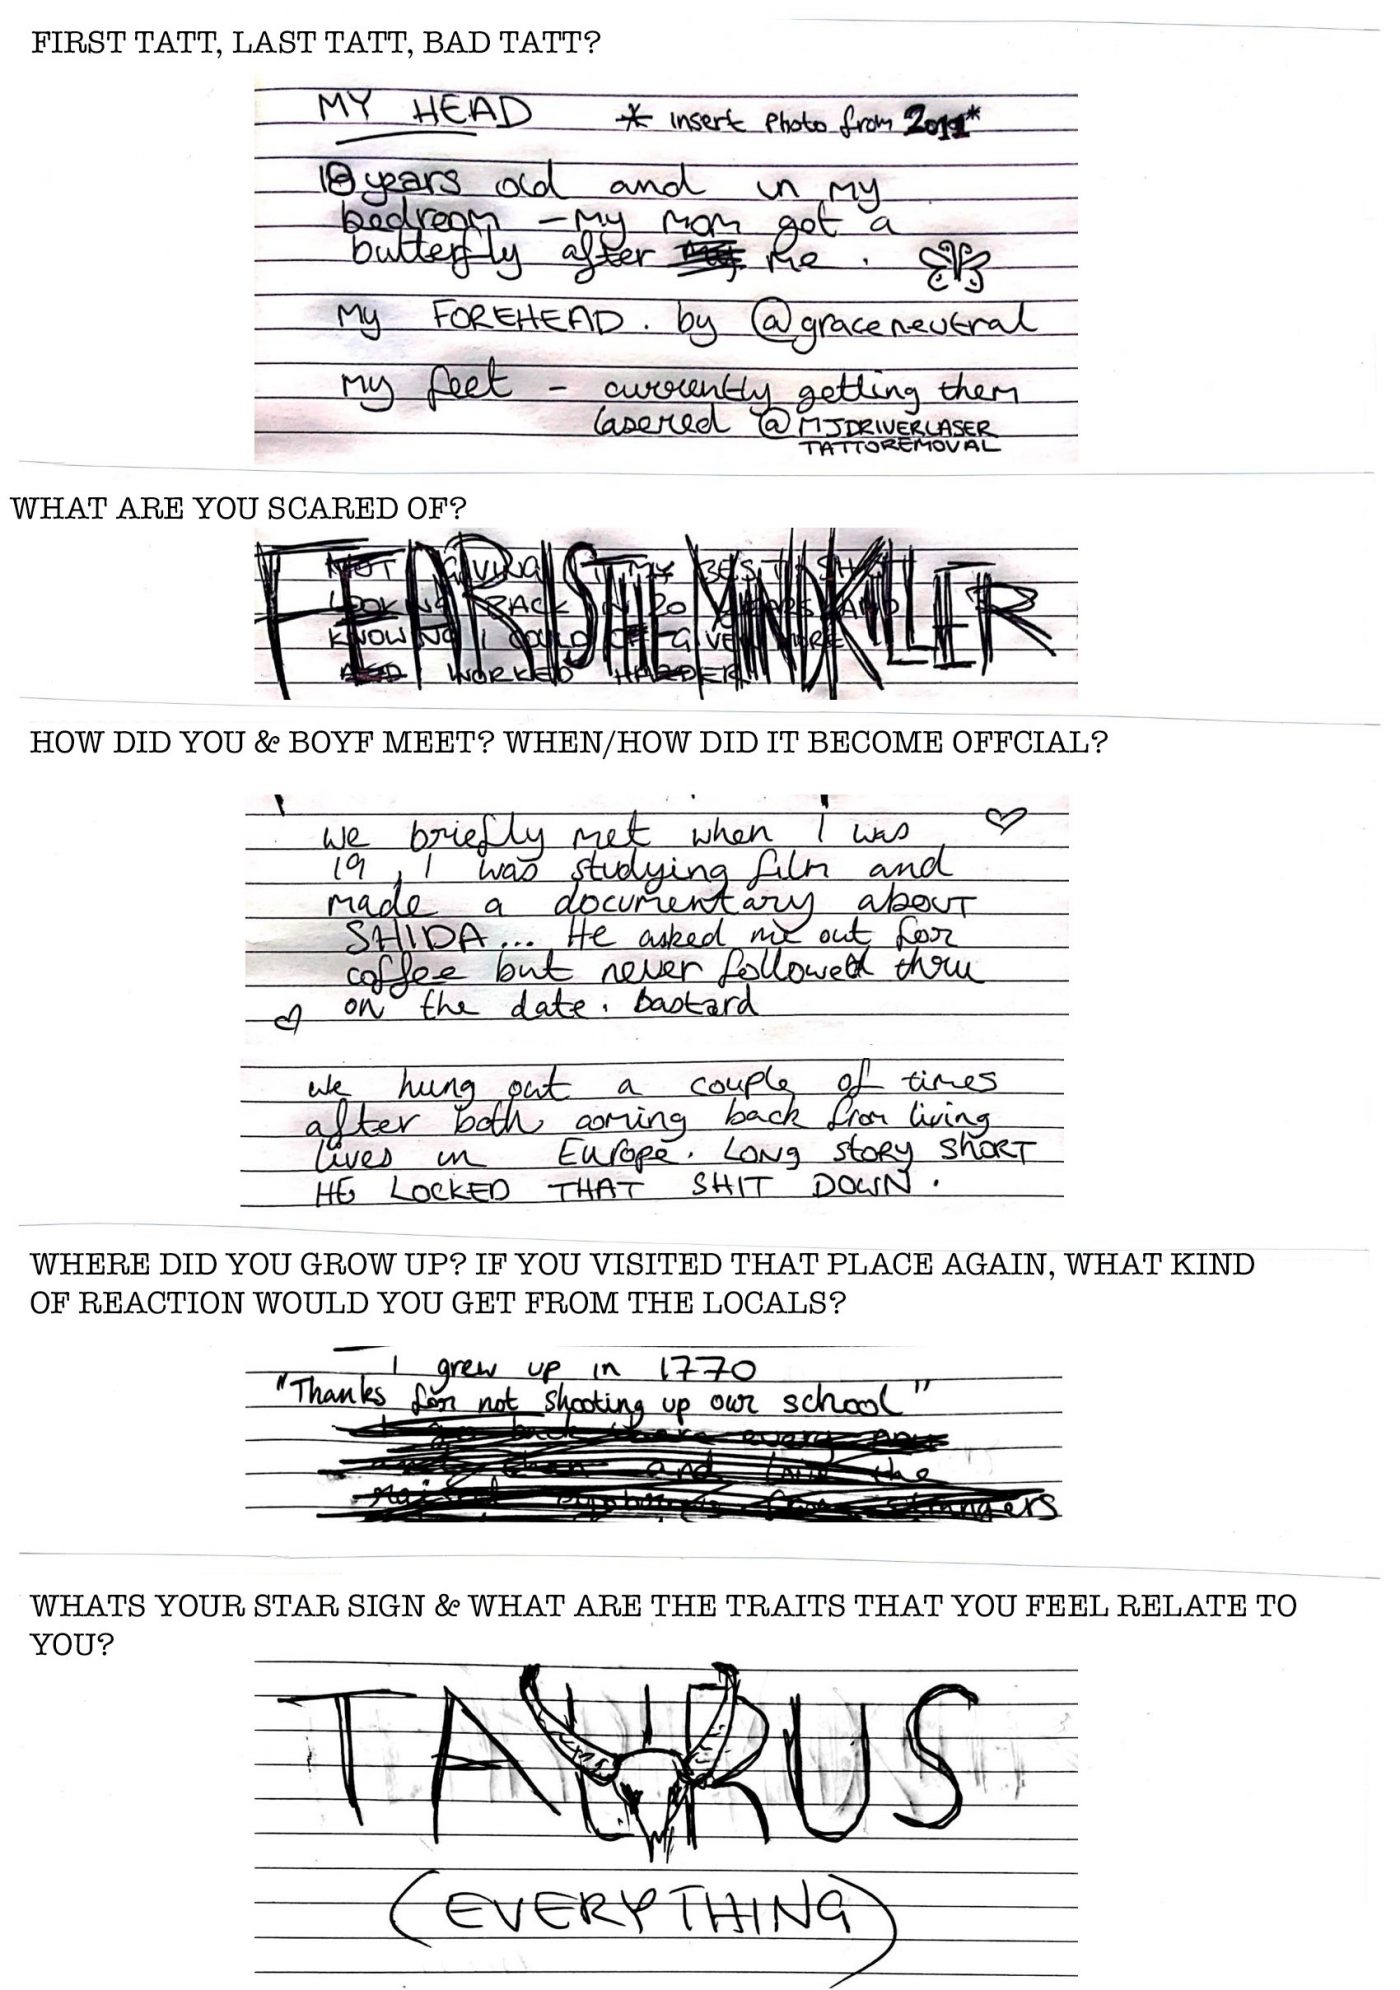 FIRST TATT, LAST TATT, BAD TATT?
MY HEAD * insert photo from 2011*
18 years old and in my
bedroom - my mom got a
butterfly after me.
My FOREHEAD. by @graceneutral
My feet - currently getting them
lasered @MJDRIVERLASER
TATTOREMOVAL
WHAT ARE YOU SCARED OF?
FEAR IS THE MINDKILLER
NOT GIVING IT MY BEST SHOT
LOOKING BACK IN 20 YEARS AND
KNOWING I COULD OF GIVEN MORE
AND WORKED HARDER
HOW DID YOU & BOYF MEET? WHEN/HOW DID IT BECOME OFFCIAL?
we briefly met when I was
19, I was studying film and
made a documentary about
SHIDA... He asked me out for
coffee but never followed thru
on the date. bastard
we hung out a couple of times
after both coming back from living
lives in Europe. Long story short
HE LOCKED THAT SHIT DOWN.
WHERE DID YOU GROW UP? IF YOU VISITED THAT PLACE AGAIN, WHAT KIND
OF REACTION WOULD YOU GET FROM THE LOCALS?
I grew up in 1770
"Thanks for not shooting up our school"
I go back there every now
and then and love the
from strangers
WHATS YOUR STAR SIGN & WHAT ARE THE TRAITS THAT YOU FEEL RELATE TO
YOU?
TAURUS
(EVERYTHING)